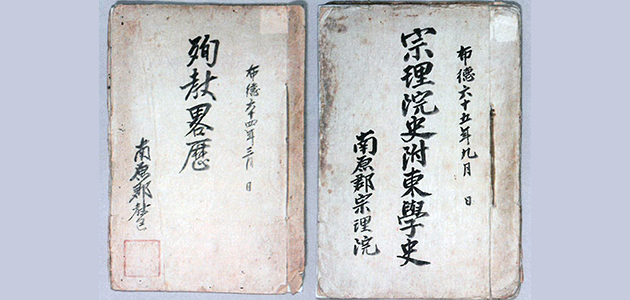 布德六十四年三月 日
殉教畧歷
南原郡
布德六十五年九月 日
宗理院史附東學史
南原郡宗理院